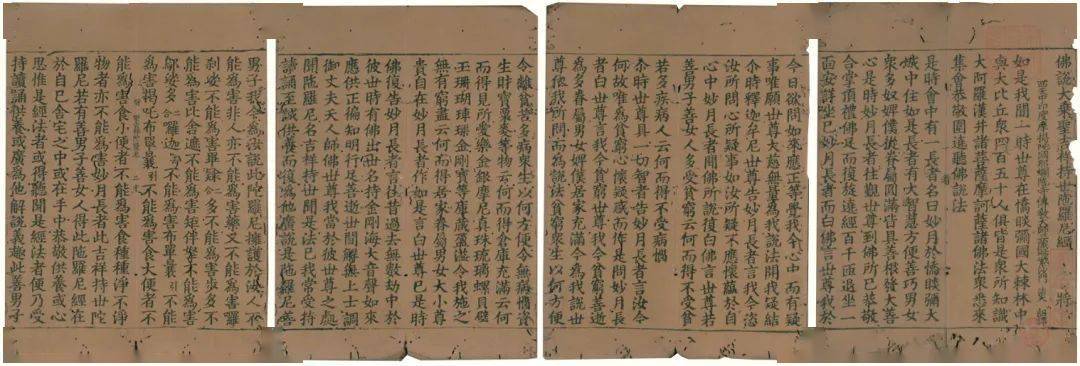 佛說大乘聖吉祥持世陀羅尼經 將
如是我聞一時世尊在憍睒彌國大棘林中
與大比丘眾四百五十人俱皆是眾所知識
大阿羅漢并諸菩薩摩訶薩諸佛法眾悉來
集會恭敬圍遶聽佛說法
是時會中有一長者名曰妙月於憍睒彌大
城中住如是長者有大智慧方便善巧男女
眾多奴婢僕從眷屬圓滿皆具善根發大善
心是時妙月長者往觀世尊到佛所已恭敬
合掌頂禮佛足而復旋遶經百千匝退坐一
面安詳坐已妙月長者而白佛言世尊我於
今日欲問如來應正等覺我今心中而有疑
事唯願世尊大慈無量為我說法開我疑結
尒時釋迦牟尼世尊告妙月長者言我今恣
汝所問心所疑事如汝所疑不應懷蘊於自
心中妙月長者聞佛所說復白佛言世尊若
善男子善女人多受貧窮云何而得不受貧
若多疾病人云何而得不受病惱
尒時世尊具一切智者告妙月長者言汝今
何故唯為貧窮心懷疑惑而作是問妙月長
者白世尊言我今貧窮世尊我今貧窮善逝
為多眷屬男女婢僕居家充滿令我今世
尊依我所問而為說法貧窮眾生以何方便
令離貧苦多病眾生以何方便令無病惱資
生財寶等物云何而得倉庫充滿云何
而得見所愛樂金銀摩尼真珠琉璃螺貝璧
玉珊瑚硨磲金剛寶等庫藏盈溢令我施之
無有窮盡云何而得居家眷屬男女大小尊
貴自在妙月長者作如是言已是時
佛復告妙月長者言往昔過去無數劫中於
彼世時有佛出世名持金剛海大音聲如來
應供正徧知明行足善逝世間解無上士調
御丈夫天人師佛世尊我當於彼世尊之處
聞陁羅尼名吉祥持世聞是法已我常受持
讀誦至誠供養而復為他廣說是陁羅尼善
男子我今為汝說此陁羅尼擁護於汝人不
能為害非人亦不能為害藥叉不能為害羅
剎娑不能為害畢隸多不能為害
能為害比舍遮不能為害
為害羯吒布單曩不能為害食大便者不
能為害食小便者不能為害食種種淨不淨
物者亦不能為害妙月長者此吉祥持世陁
羅尼若有善男子善女人得此陁羅尼經在
於自己舍宅之中或在手中恭敬供養或心
思惟是經法者或得聽聞是經法者便乃受
持讀誦供養或廣為他解說義趣此善男子